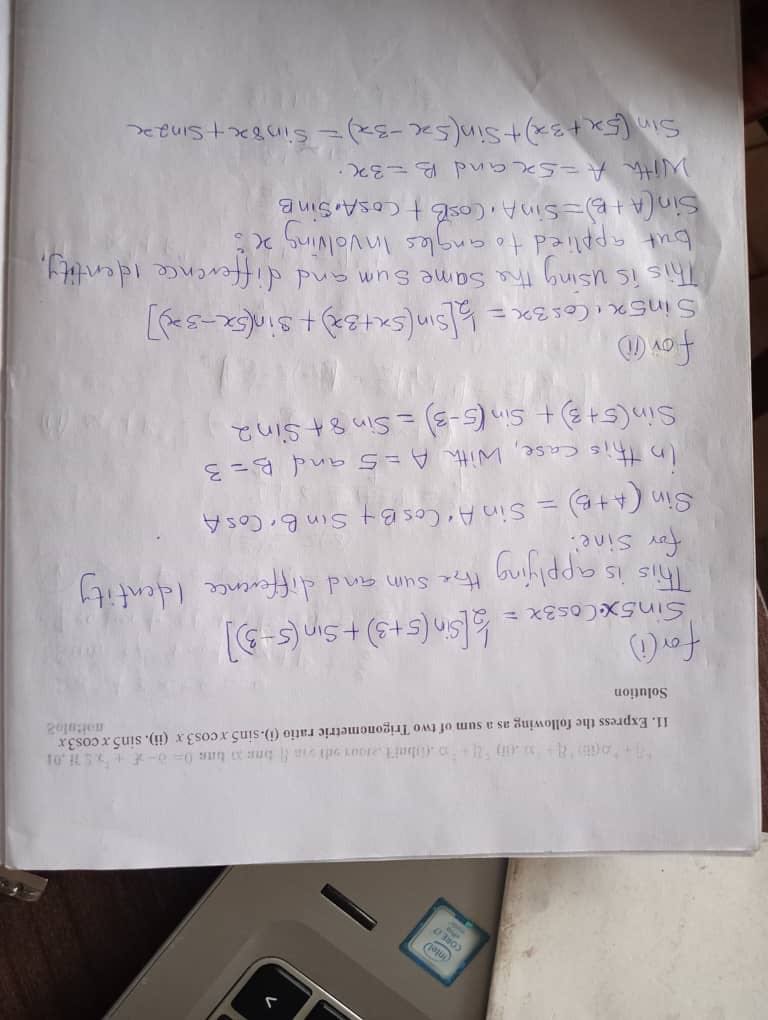 intel
CORE i7
11. Express the following as a sum of two Trigonometric ratio (i). sin5 x cos3 x (ii). sin5 x cos3 x
Solution
for (i)
Sin5x·Cos3x = ½[Sin(5+3) + Sin(5-3)]
This is applying the sum and difference Identity
for sine:
Sin (A+B) = Sin A · Cos B + Sin B · Cos A
in this case, With A = 5 and B = 3
Sin(5+3) + Sin(5-3) = Sin 8 + Sin 2
for (ii)
Sin5x · Cos3x = ½[Sin(5x+3x) + Sin(5x-3x)]
This is using the same sum and difference identity,
but applied to angles Involving x:
Sin(A+B) = Sin A · Cos B + Cos A · Sin B
With A = 5x and B = 3x.
Sin (5x+3x) + Sin(5x-3x) = Sin8x + Sin2x